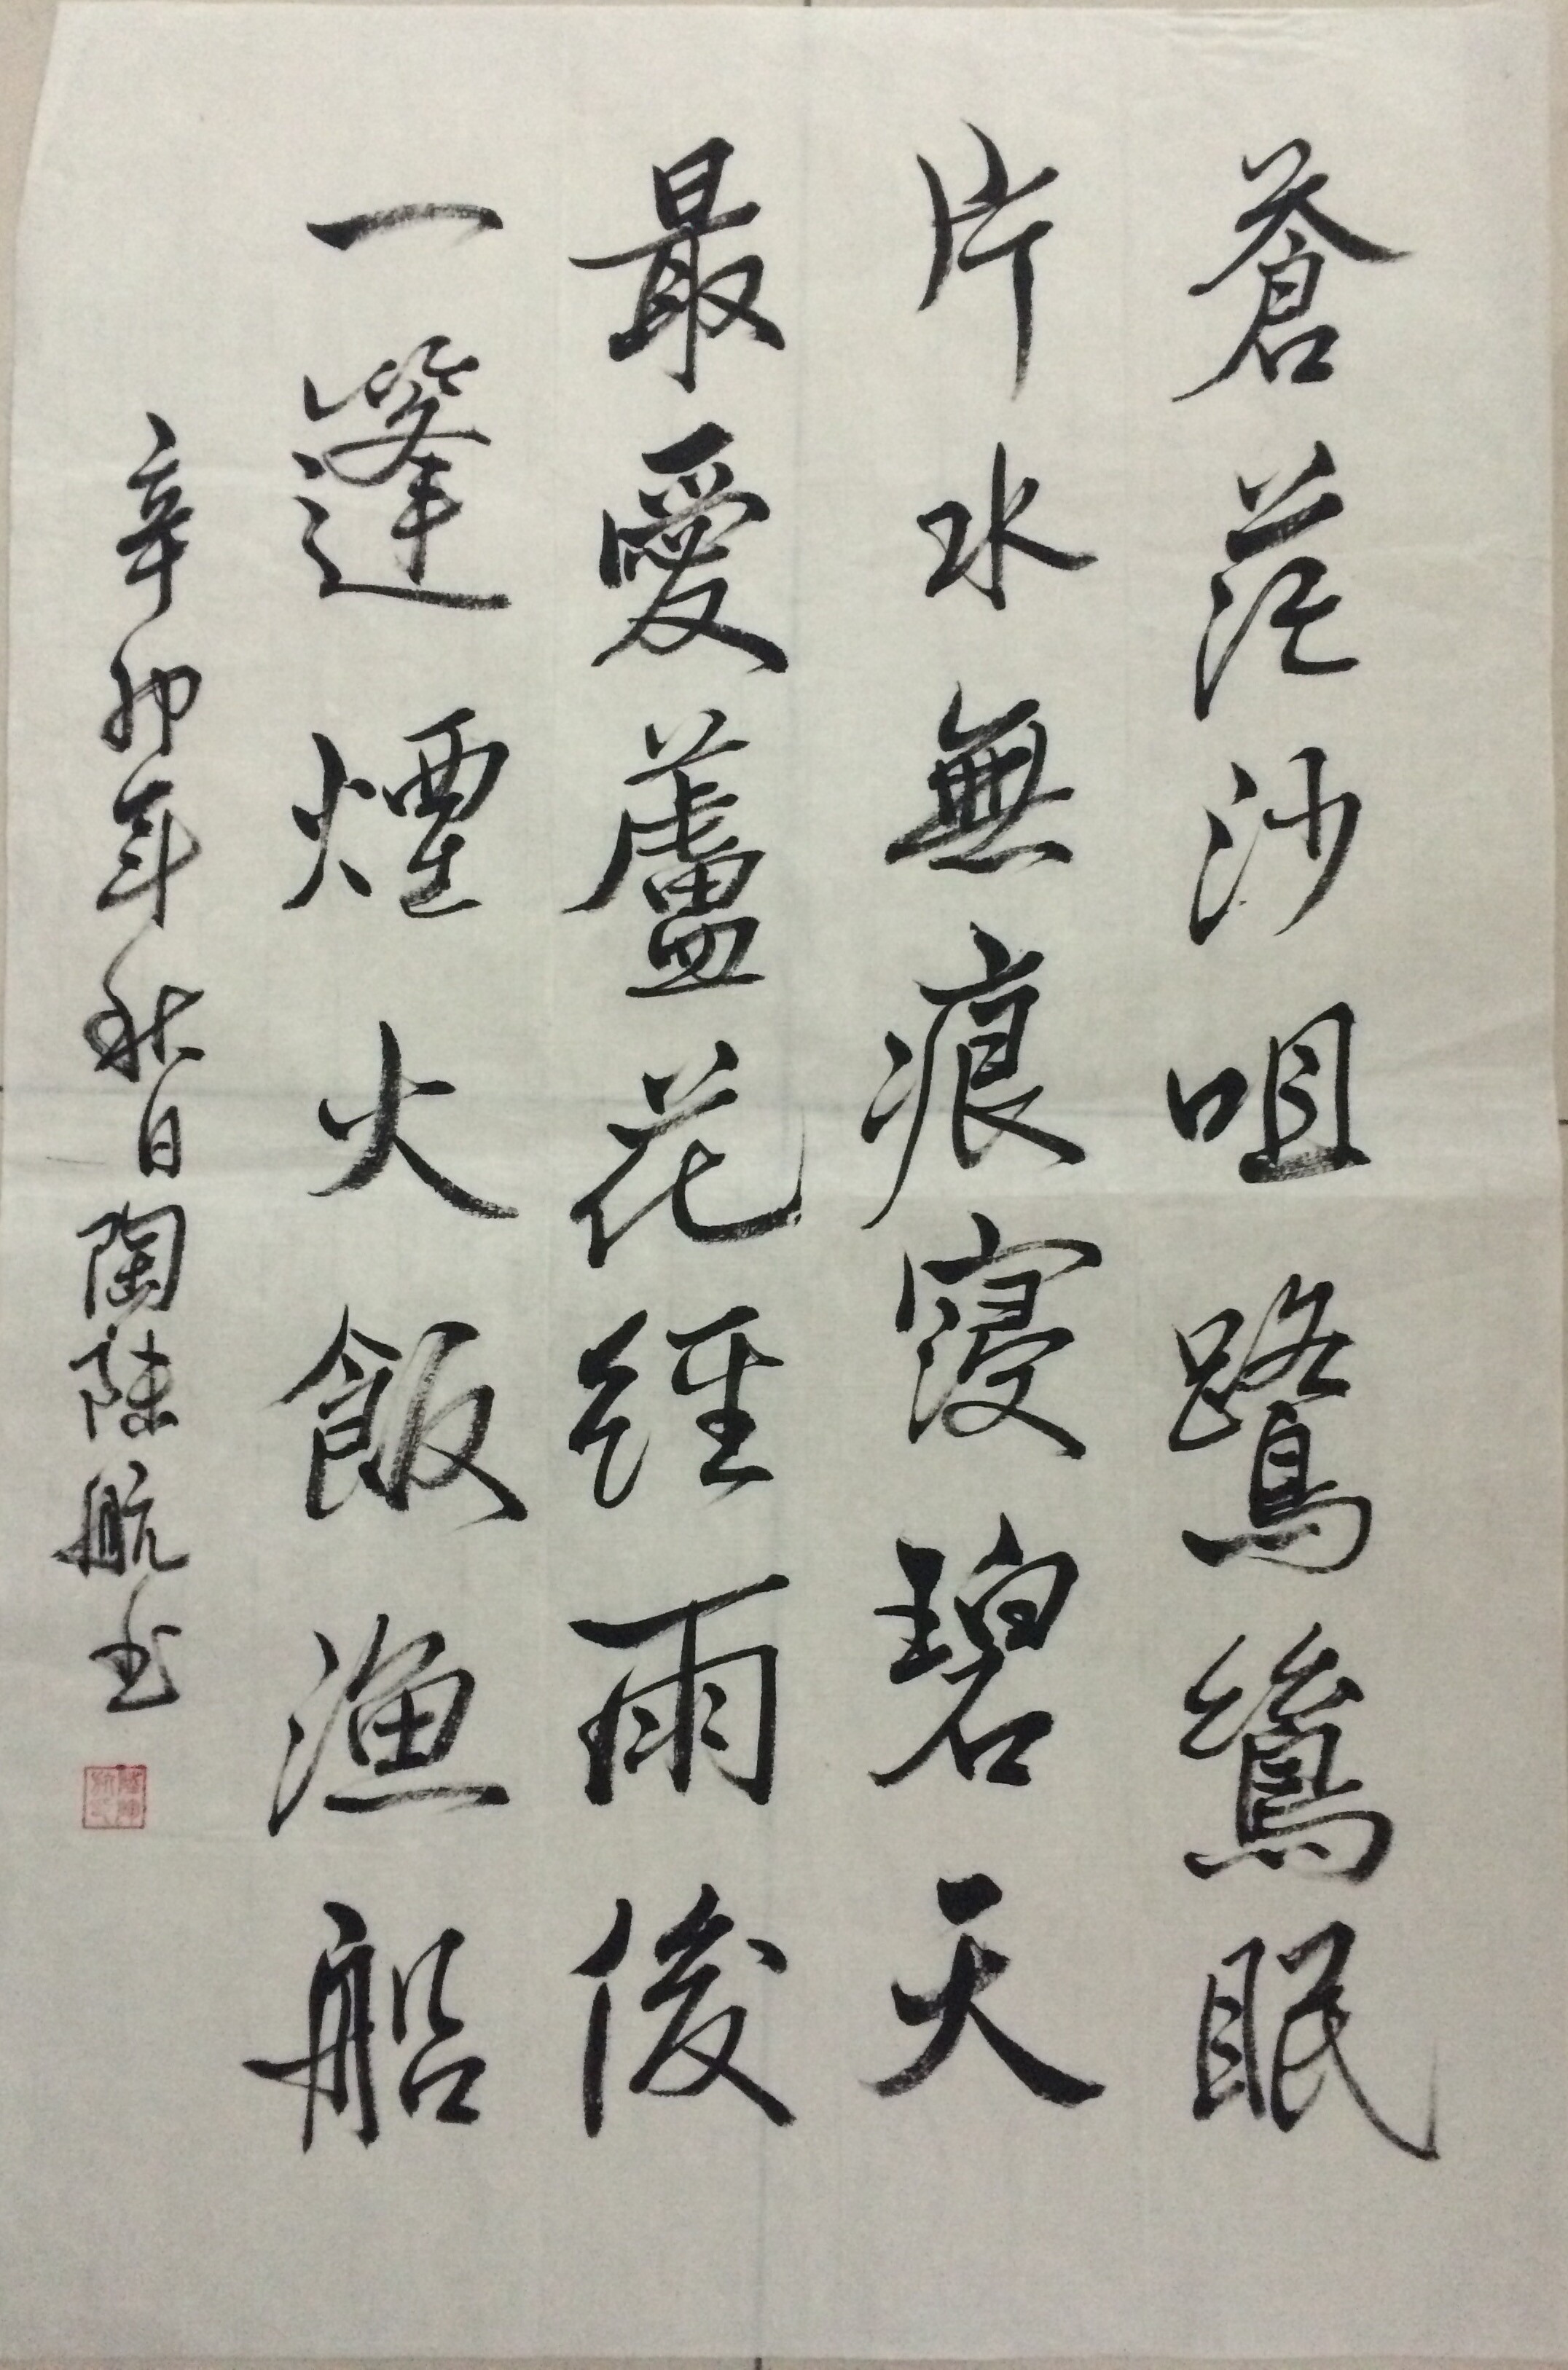 蒼茫沙咀鷺鷥眠
片水無痕寖碧天
最愛蘆花經雨後
一篷煙火飯漁船
辛卯年秋日陶陳航書